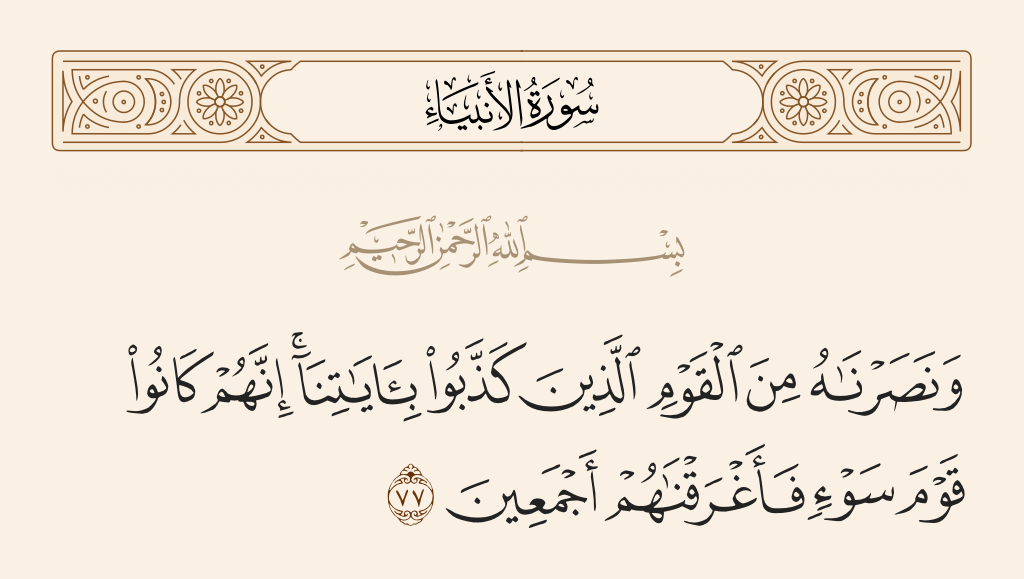 سُورَةُ الأَنبِيَاءِ
بِسْمِ ٱللَّهِ ٱلرَّحْمَٰنِ ٱلرَّحِيمِ
وَنَصَرْنَٰهُ مِنَ ٱلْقَوْمِ ٱلَّذِينَ كَذَّبُوا۟ بِـَٔايَٰتِنَآ ۚ إِنَّهُمْ كَانُوا۟
قَوْمَ سَوْءٍ فَأَغْرَقْنَٰهُمْ أَجْمَعِينَ ٧٧